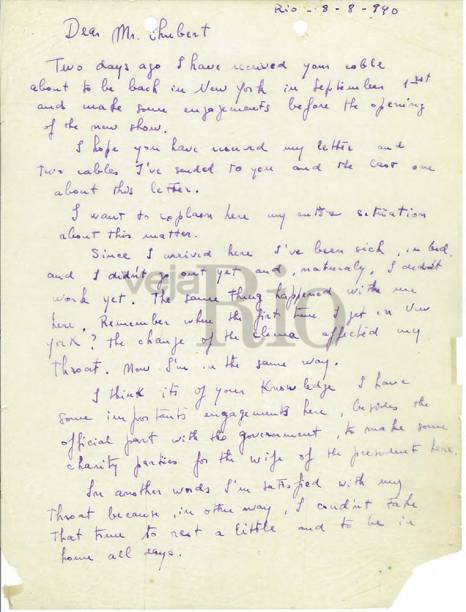 Rio - 8-8-940
Dear Mr. Shubert
Two days ago I have received your cable
about to be back in New York in September 1st
and make some engagements before the opening
of the new show.
I hope you have received my letter and
two cables I've sended to you and the last one
about this letter.
I want to explain here my entire situation
about this matter.
Since I arrived here I've been sick, in bed
and I didn't go out yet and, naturaly, I didn't
work yet. The same thing happened with me
here. Remember when the first time I get in New
York? The change of the clima affected my
Throat. Now I'm in the same way.
I think its of your Knowledge I have
some importants engagements here, besides the
official part with the government, to make some
charity parties for the wife of the president here.
In another words I'm satisfied with my
Throat because, in other way, I couldn't take
that time to rest a little and to be in
home all days.
veja
Rio